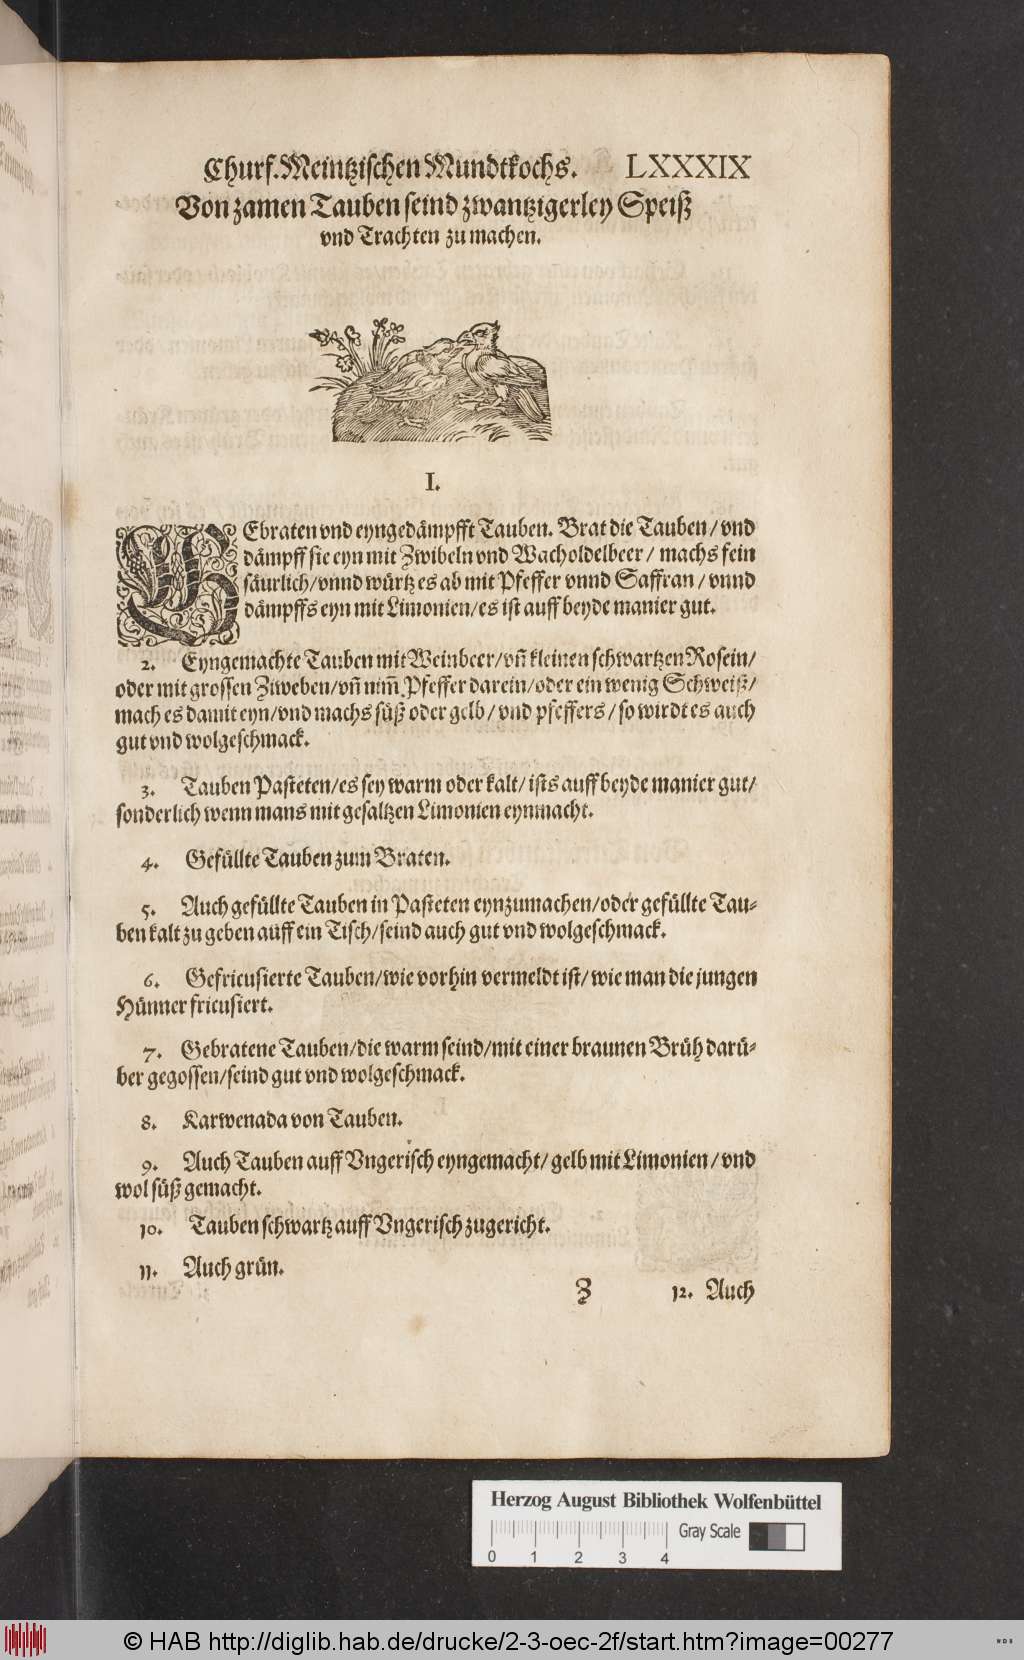 Churf. Meintzischen Mundtkochs. LXXXIX
Von zamen Tauben seind zwantzigerley Speiß
vnd Trachten zu machen.
I.
GEbraten vnd eyngedämpfft Tauben. Brat die Tauben / vnd
dämpff sie eyn mit Zwibeln vnd Wacholdelbeer / machs fein
säurlich / vnnd würtz es ab mit Pfeffer vnnd Saffran / vnnd
dämpffs eyn mit Limonien / es ist auff beyde manier gut.
2. Eyngemachte Tauben mit Weinbeer / vn̄ kleinen schwartzen Rosein /
oder mit grossen Ziweben / vn̄ nim̄ Pfeffer darein / oder ein wenig Schweiß /
mach es damit eyn / vnd machs süß oder gelb / vnd pfeffers / so wirdt es auch
gut vnd wolgeschmack.
3. Tauben Pasteten / es sey warm oder kalt / ists auff beyde manier gut /
sonderlich wenn mans mit gesaltzen Limonien eynmacht.
4. Gefüllte Tauben zum Braten.
5. Auch gefüllte Tauben in Pasteten eynzumachen / oder gefüllte Tau-
ben kalt zu geben auff ein Tisch / seind auch gut vnd wolgeschmack.
6. Gefricusierte Tauben / wie vorhin vermeldt ist / wie man die jungen
Hünner fricusiert.
7. Gebratene Tauben / die warm seind / mit einer braunen Brüh darü-
ber gegossen / seind gut vnd wolgeschmack.
8. Karwenada von Tauben.
9. Auch Tauben auff Vngerisch eyngemacht / gelb mit Limonien / vnd
wol süß gemacht.
10. Tauben schwartz auff Vngerisch zugericht.
11. Auch grün.
Z 12. Auch
Herzog August Bibliothek Wolfenbüttel
Gray Scale
0 1 2 3 4
© HAB http://diglib.hab.de/drucke/2-3-oec-2f/start.htm?image=00277